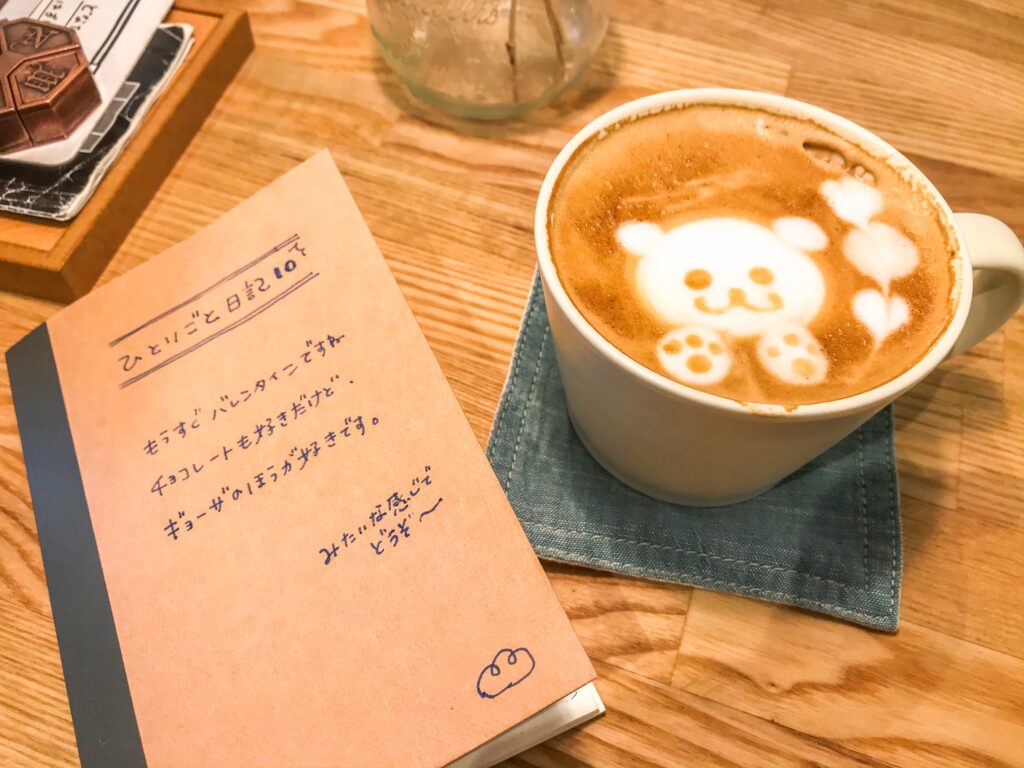 ひとりごと日記10で
もうすぐバレンタインですね
チョコレートも好きだけど、
ギョーザのほうが好きです。
みたいな感じで
どうぞ〜